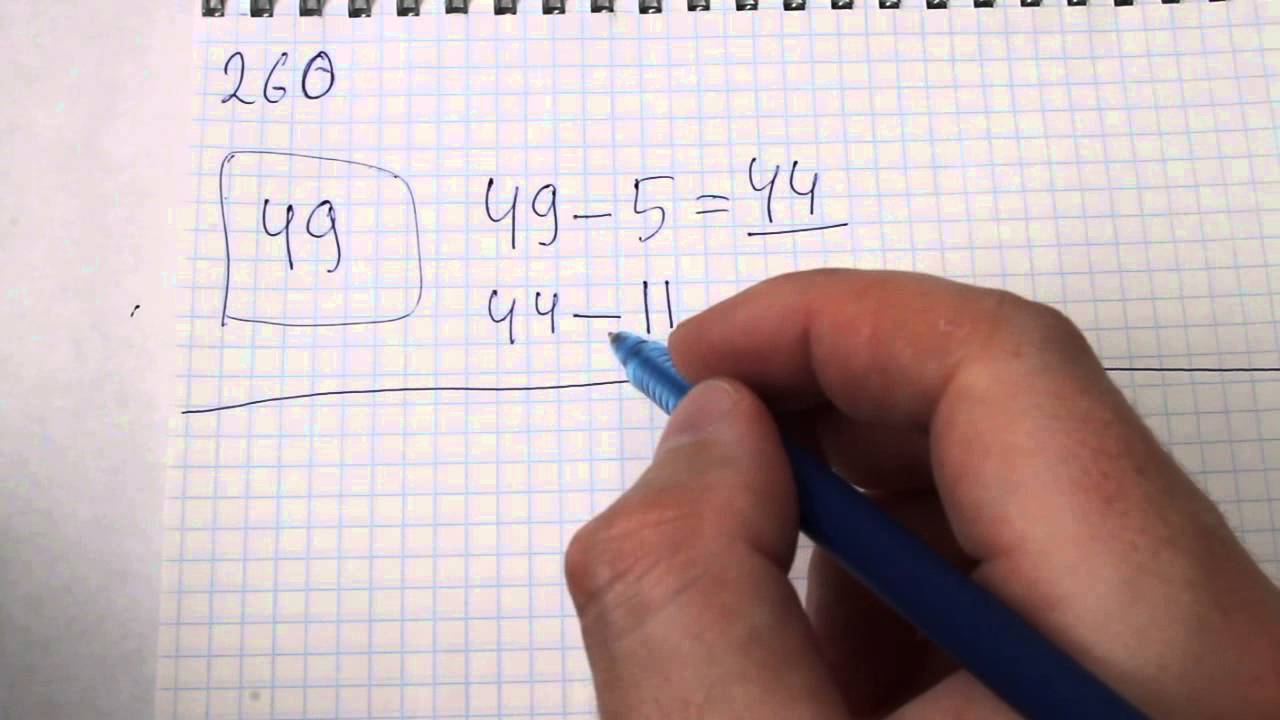 260
49
49 - 5 = 44
44 - 11